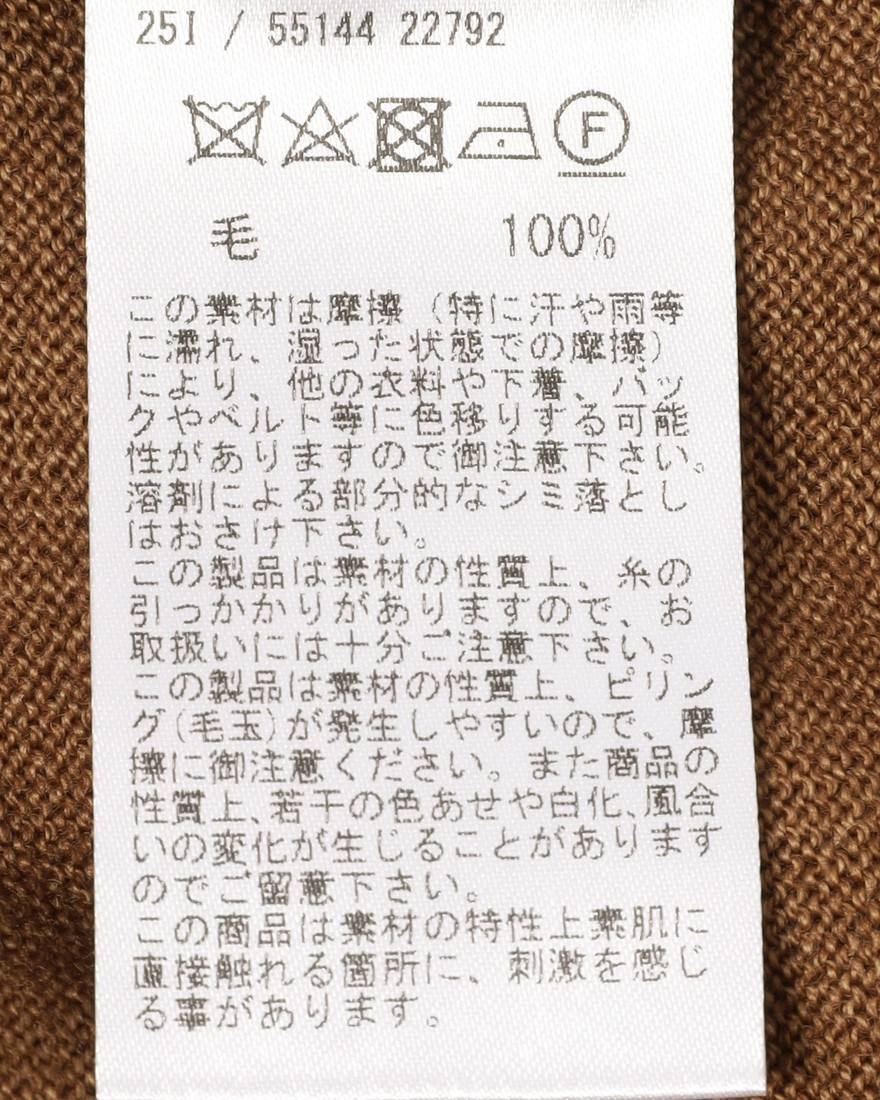 25I / 55144 22792
F
毛 100%
この素材は摩擦（特に汗や雨等
に濡れ、湿った状態での摩擦）
により、他の衣料や下着、バッ
クやベルト等に色移りする可能
性がありますので御注意下さい。
溶剤による部分的なシミ落とし
はおさけ下さい。
この製品は素材の性質上、糸の
引っかかりがありますので、お
取扱いには十分ご注意下さい。
この製品は素材の性質上、ピリン
グ(毛玉)が発生しやすいので、摩
擦に御注意ください。また商品の
性質上、若干の色あせや白化、風合
いの変化が生じることがあります
のでご留意下さい。
この商品は素材の特性上素肌に
直接触れる箇所に、刺激を感じ
る事があります。